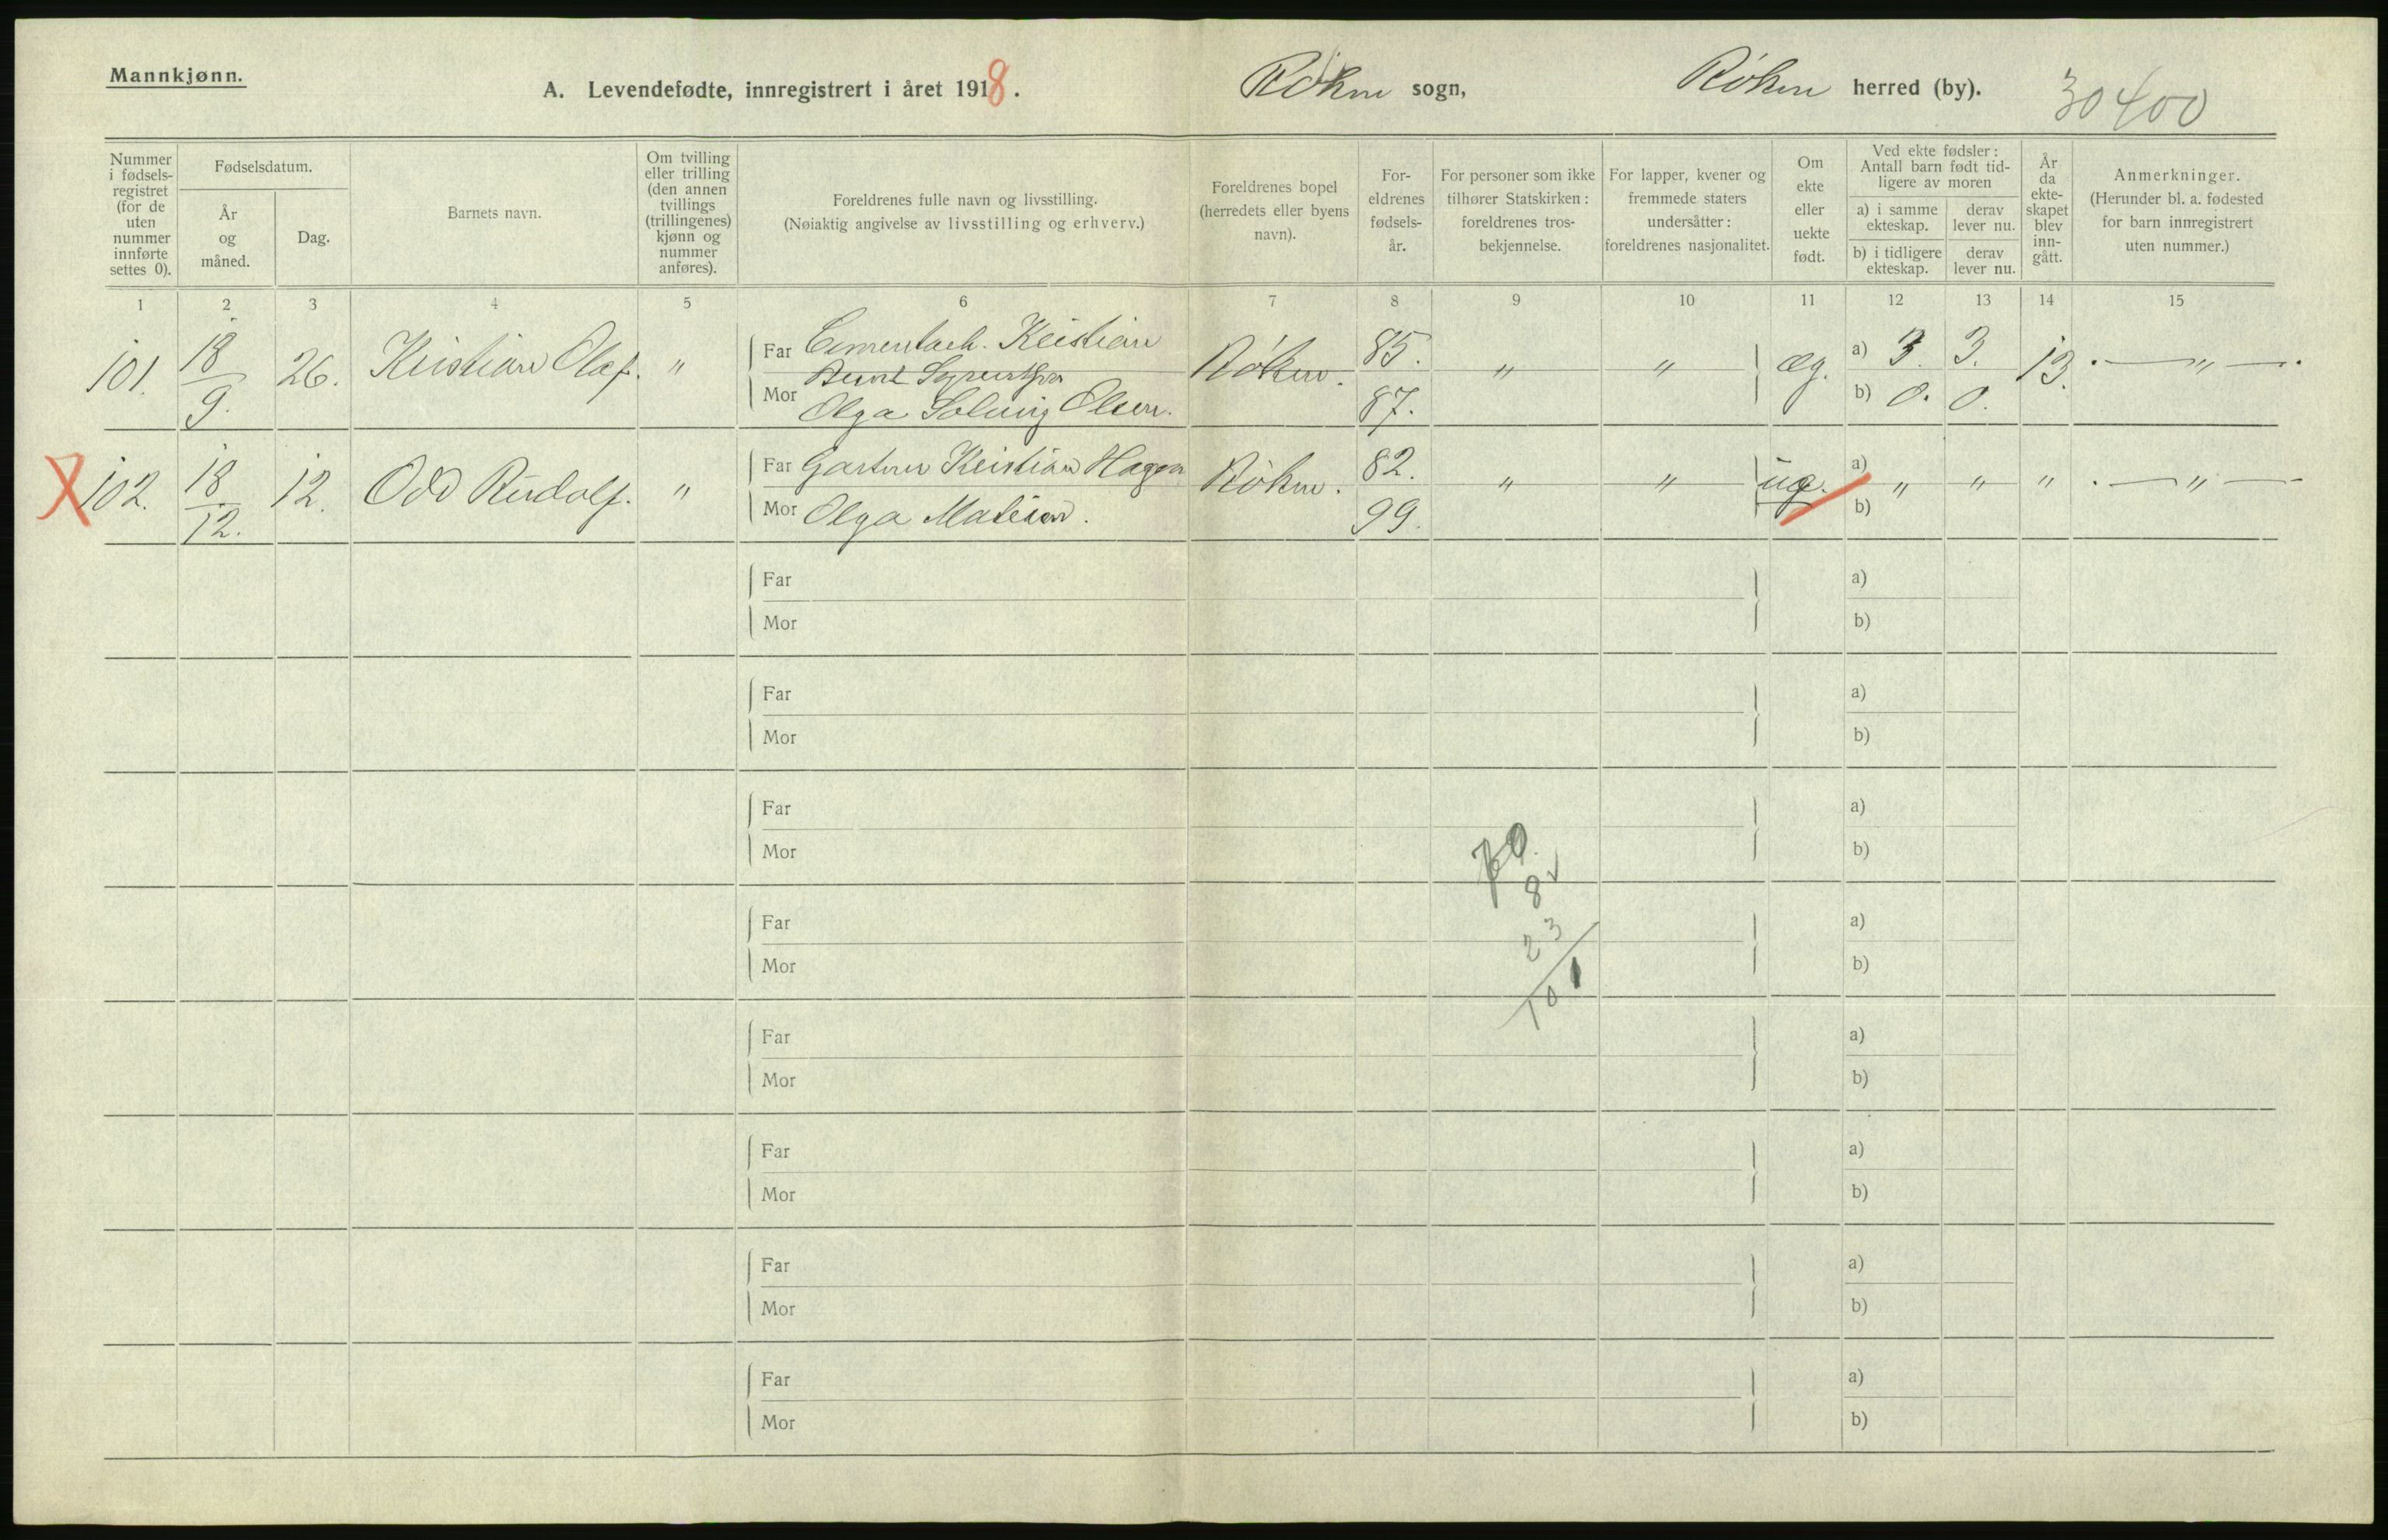 Mannkjønn.
A. Levendefødte, innregistrert i året 1918.
Røken sogn,
Røken herred (by).
30400
Nummer i fødsels-registret (for de uten nummer innførte settes 0).
Fødselsdatum.
År og måned.
Dag.
Barnets navn.
Om tvilling eller trilling (den annen tvillings (trillingenes) kjønn og nummer anføres).
Foreldrenes fulle navn og livsstilling.
(Nøiaktig angivelse av livsstilling og erhverv.)
Foreldrenes bopel (herredets eller byens navn).
For-eldrenes fødsels-år.
For personer som ikke tilhører Statskirken: foreldrenes tros-bekjennelse.
For lapper, kvener og fremmede staters undersåtter: foreldrenes nasjonalitet.
Om ekte eller uekte født.
Ved ekte fødsler: Antall barn født tid-ligere av moren
a) i samme ekteskap.
derav lever nu.
b) i tidligere ekteskap.
derav lever nu.
År da ekte-skapet blev inn-gått.
Anmerkninger.
(Herunder bl. a. fødested for barn innregistrert uten nummer.)
1 2 3 4 5 6 7 8 9 10 11 12 13 14 15
101. 18/9. 26. Kristian Olaf. " Far Cementarb. Kristian Røken. 85. " " æg. a) 3 3. 13. — " —
Mor Olga Solveig Olsen. 87. b) 0. 0.
X 102. 18/12. 12. Odd Rudolf. " Far Gartner Kristian Hagen Røken. 82. " " ug. a) " " " — " —
Mor Olga Matisen. 99. b)
Far a)
Mor b)
Far a)
Mor b)
Far a)
Mor b)
70.
8 ✓
Far a)
23
Mor b)
101
Far a)
Mor b)
Far a)
Mor b)
Far a)
Mor b)
Far a)
Mor b)